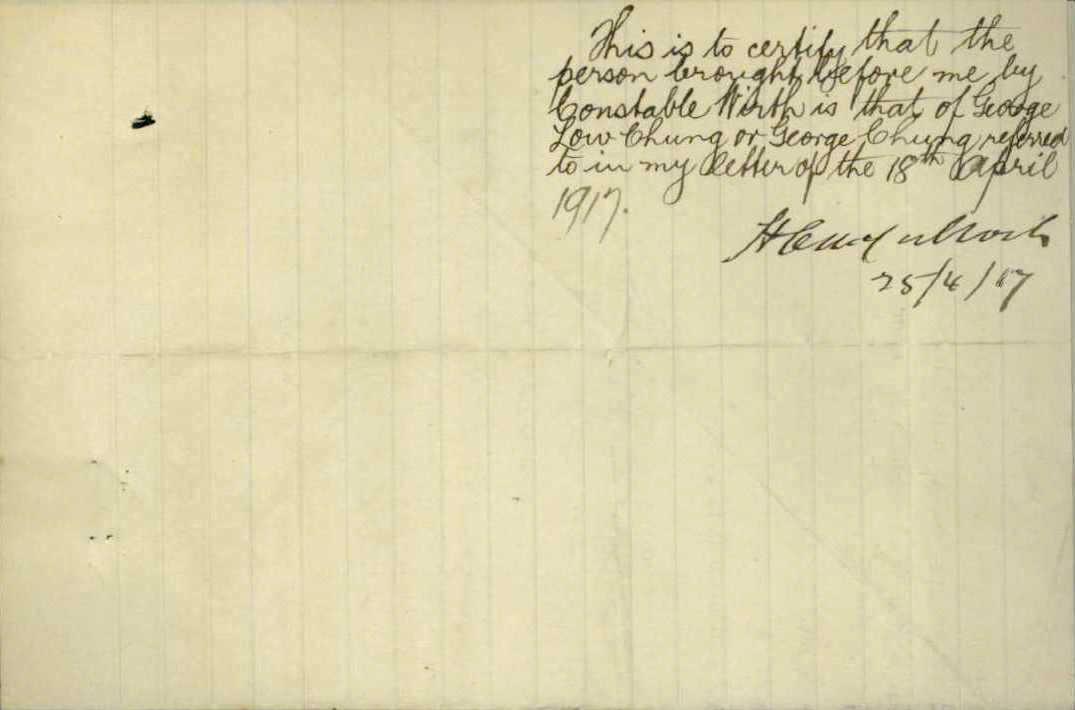 This is to certify that the
person brought before me by
Constable Wirth is that of George
Low Chung or George Chung referred
to in my letter of the 18th April
1917.
25/4/17